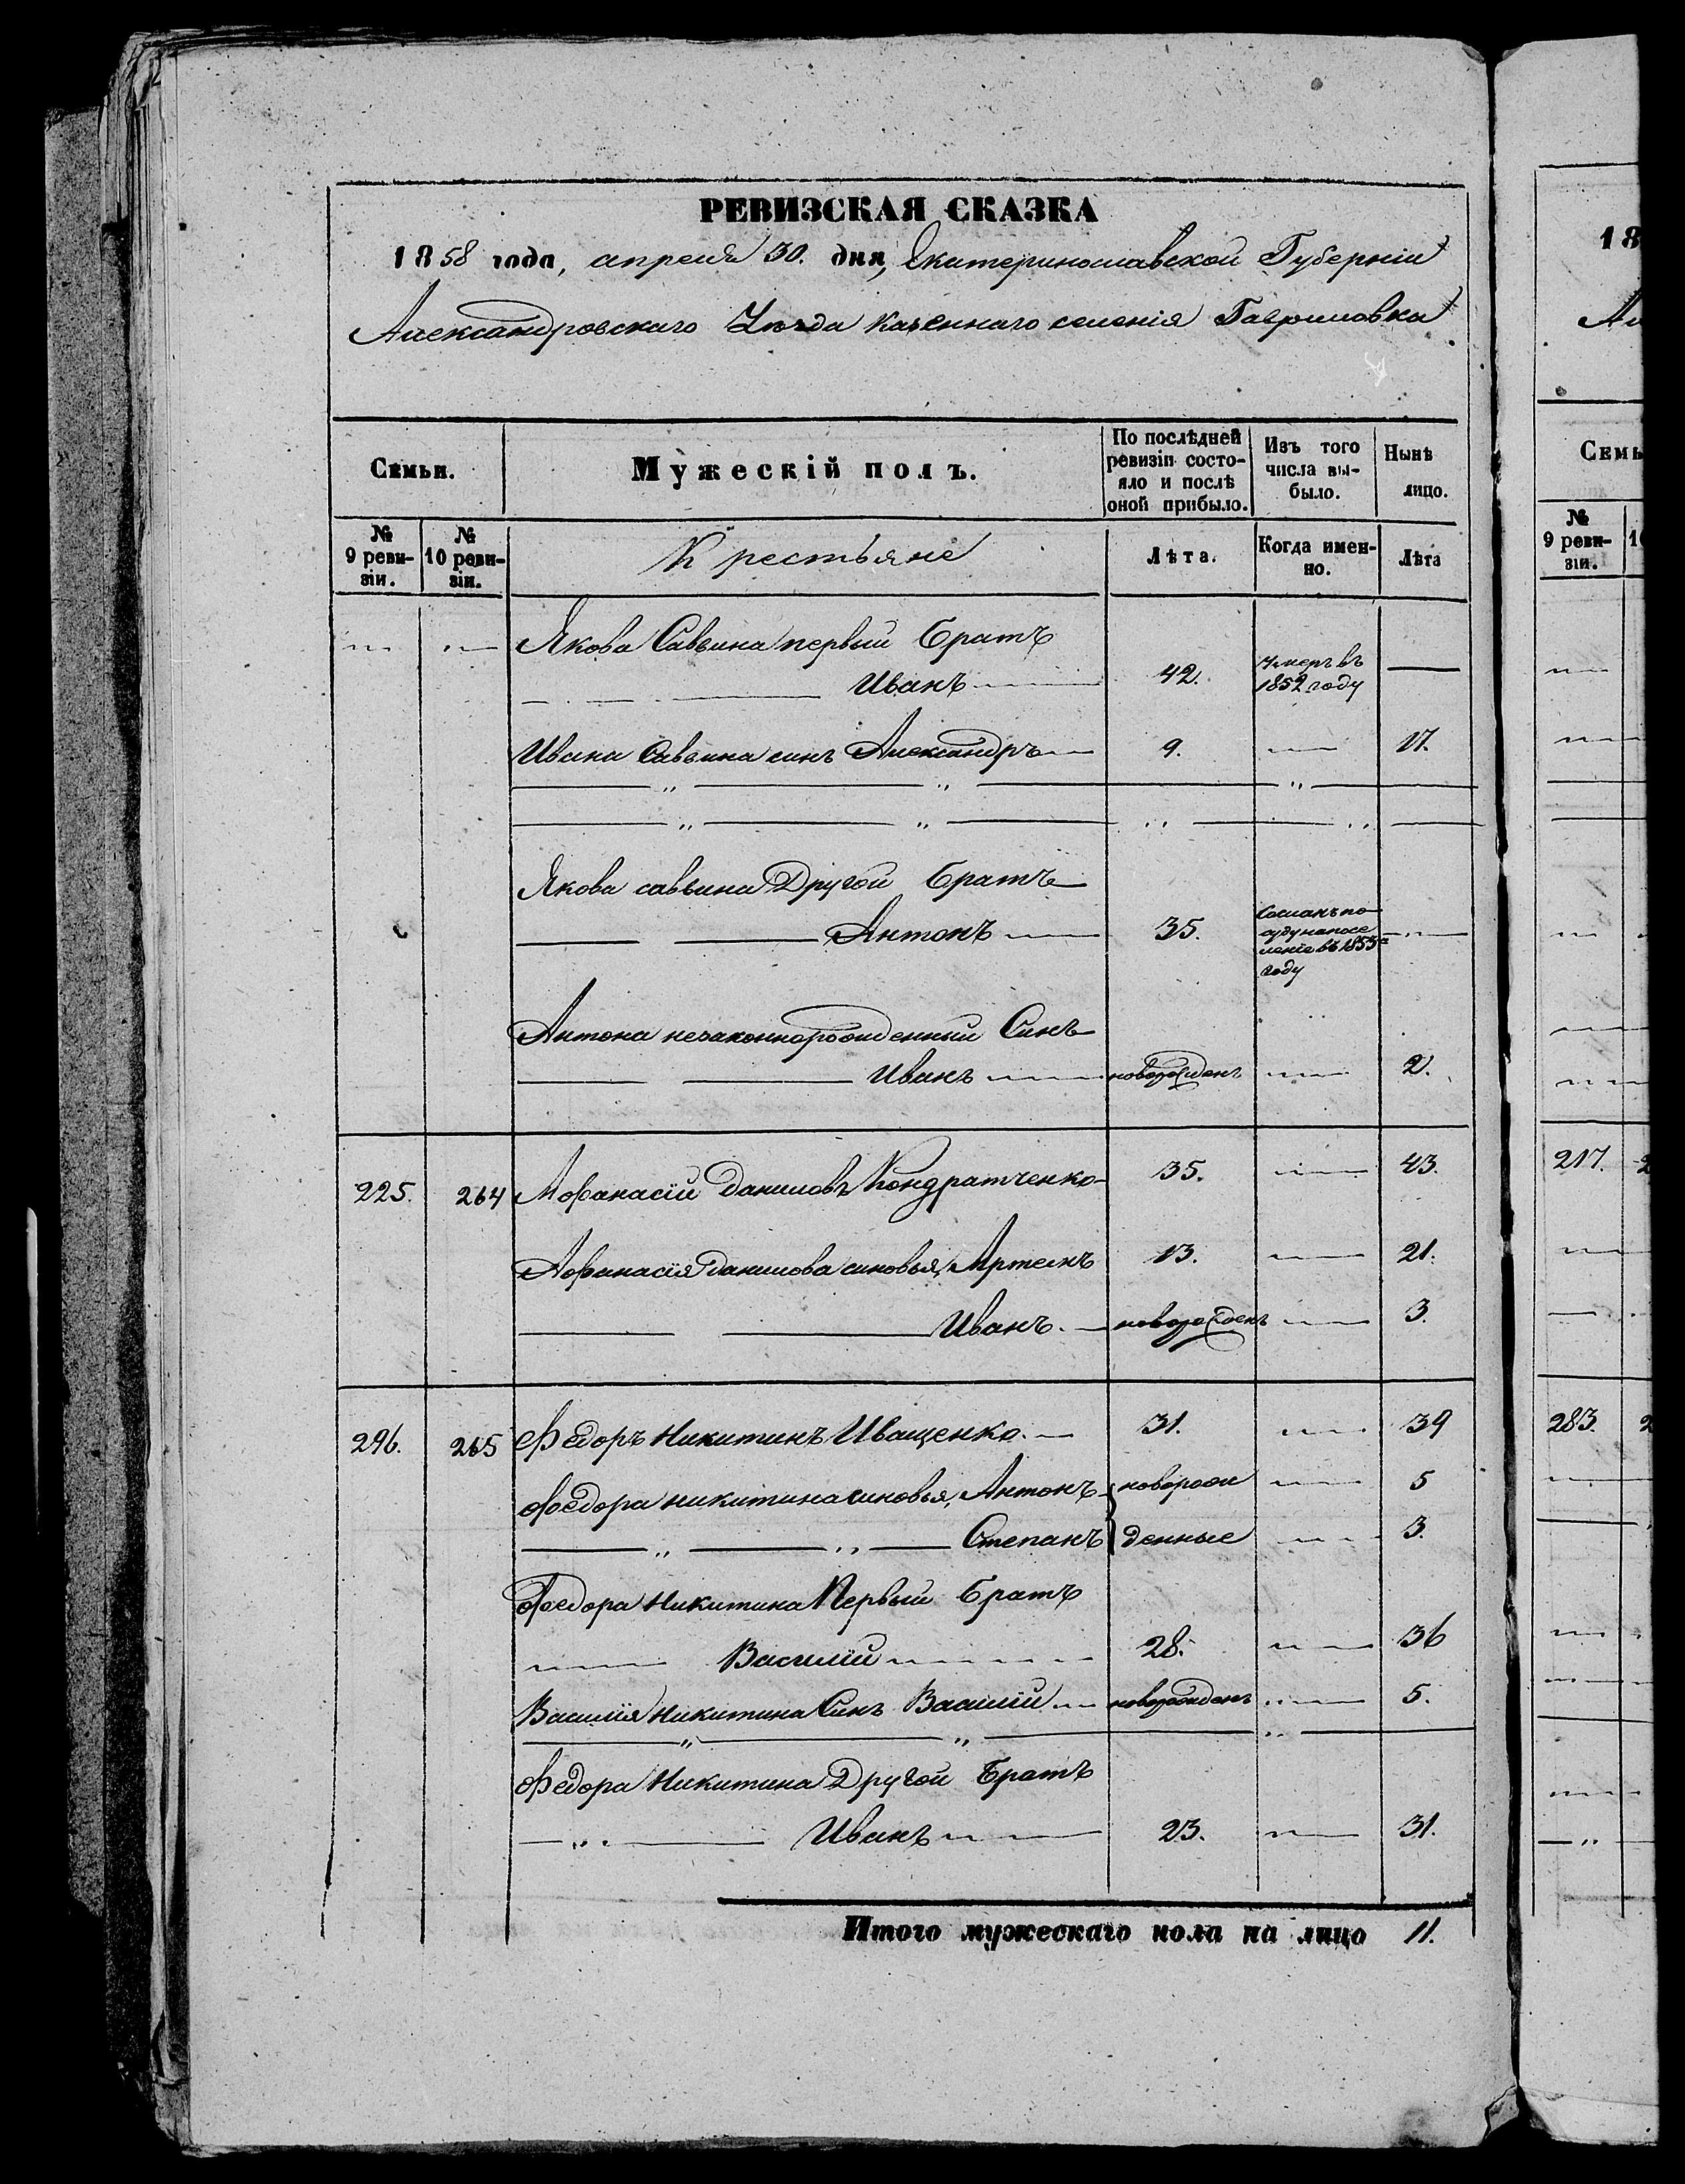 РЕВИЗСКАЯ СКАЗКА
1858 года, апреля 30. дня, Екатеринославской Губерніи
Александровскаго Уѣзда казеннаго селенія Гавриловка
Семьи. Мужескій полъ. По послѣдней ревизіи состояло и послѣ оной прибыло. Изъ того числа выбыло. Нынѣ лицо.
№ 9 ревизіи. № 10 ревизіи. Крестьяне Лѣта. Когда именно. Лѣта
Якова Савьина первый братъ
Иванъ 42. Умеръ въ 1852 году
Ивана Савьина синъ Александръ 9. 17.
Якова савьина Другой братъ
Антонъ 35. Сосланъ по суду на поселеніе въ 1853 году
Антона незаконнорожденный Синъ
Иванъ новорожденъ 2.
225. 264 Афанасій Даниловъ Кондратченко 35. 43.
Афанасія Данилова синовья, Артемъ 13. 21.
Иванъ новорожденъ 3.
296. 265 Федоръ Никитинъ Иващенко. 31. 39
Федора никитина синовья, Антонъ новорож 5
Степанъ денные 3.
Федора Никитина Первый братъ
Василій 28. 36
Василія Никитина Синъ Василій новорожденъ 5.
Федора Никитина Другой братъ
Иванъ 23. 31.
Итого мужескаго пола на лицо 11.
18
Семь
№ 9 ревизіи.
217.
283.